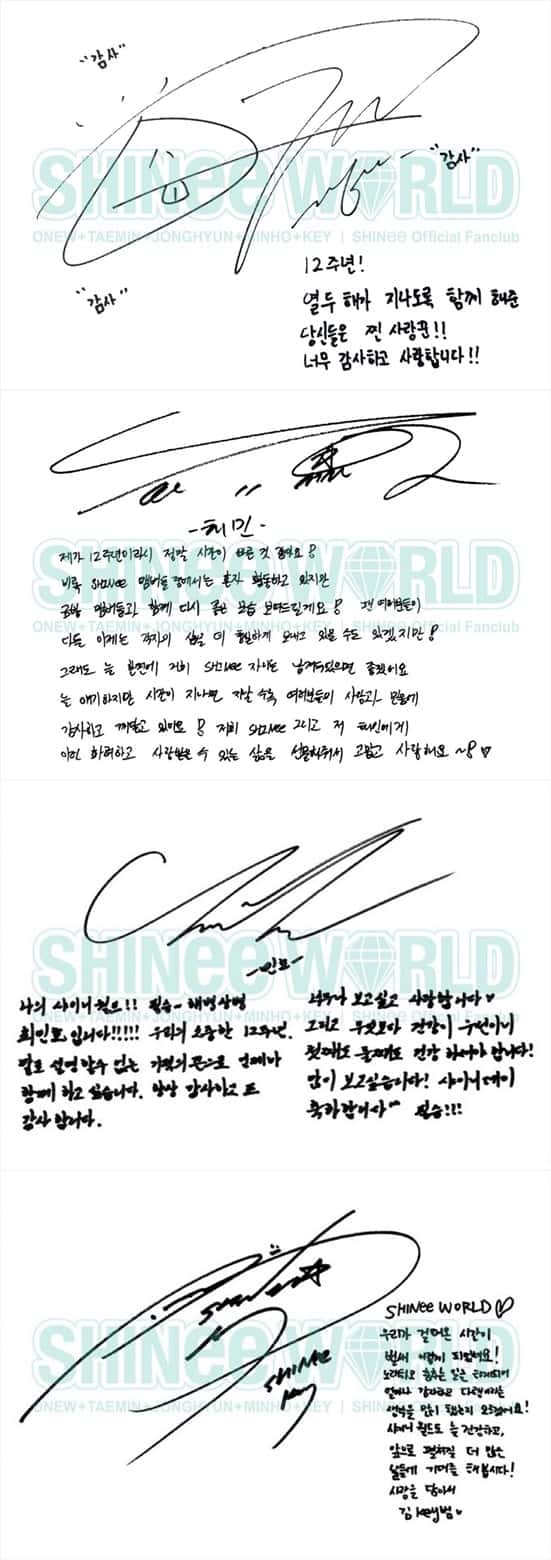 "감사"
"감사"
"감사"
SHINee WORLD
ONEW+TAEMIN+JONGHYUN+MINHO+KEY | SHINee Official Fanclub
12주년!
열두 해가 지나도록 함께 해준
당신들은 찐 사랑꾼!!
너무 감사하고 사랑합니다!!
-태민-
SHINee WORLD
ONEW+TAEMIN+JONGHYUN+MINHO+KEY | SHINee Official Fanclub
제가 12주년이라니 정말 시간이 빠른 것 같아요!
비록 SHINee 멤버들 중에서는 혼자 활동하고 있지만
금방 멤버들과 함께 다시 좋은 모습 보여드릴게요! 팬 여러분들이
다들 이제는 각자의 삶을 더 충실하게 보내고 있을 수도 있겠지만!
그래도 늘 한편에 저희 SHINee 자리는 남겨두셨으면 좋겠어요
늘 얘기하지만 시간이 지나면 지날수록 여러분들의 사랑과 믿음에
감사하고 깨닫고 있어요! 저희 SHINee 그리고 저 태민에게
이런 화려하고 사랑받을 수 있는 삶을 선물해줘서 고맙고 사랑해요 ~! ♡
SHINee WORLD
ONEW+TAEMIN+JONGHYUN+MINHO+KEY | SHINee Official Fanclub
-민호-
나의 샤이니 월드!! 필승- 해병 상병
최민호입니다!!!!! 우리의 소중한 12주년.
말로 설명할수 없는 기쁨의 끈으로 언제나
함께 하고 싶습니다. 항상 감사하고 또
감사합니다.
너무나 보고싶고 사랑합니다♡
그리고 무엇보다 건강이 우선이니
첫째도 둘째도 건강 하셔야 합니다!
많이 보고싶습니다! 샤이니 데이
축하합니다^^ 필승!!!
SHINee WORLD
ONEW+TAEMIN+JONGHYUN+MINHO+KEY | SHINee Official Fanclub
SHINee
key
SHINee WORLD♡
우리가 걸어온 시간이
벌써 이렇게 되었네요!
노래하고 춤추는 일을 하게되어
얼마나 감사하고 다행이라는
생각을 많이 했는지 모르겠어요!
샤이니 월드도 늘 건강하고,
앞으로 펼쳐질 더 많은
날들에 기대를 해봅시다!
사랑을 담아서
김key범♡